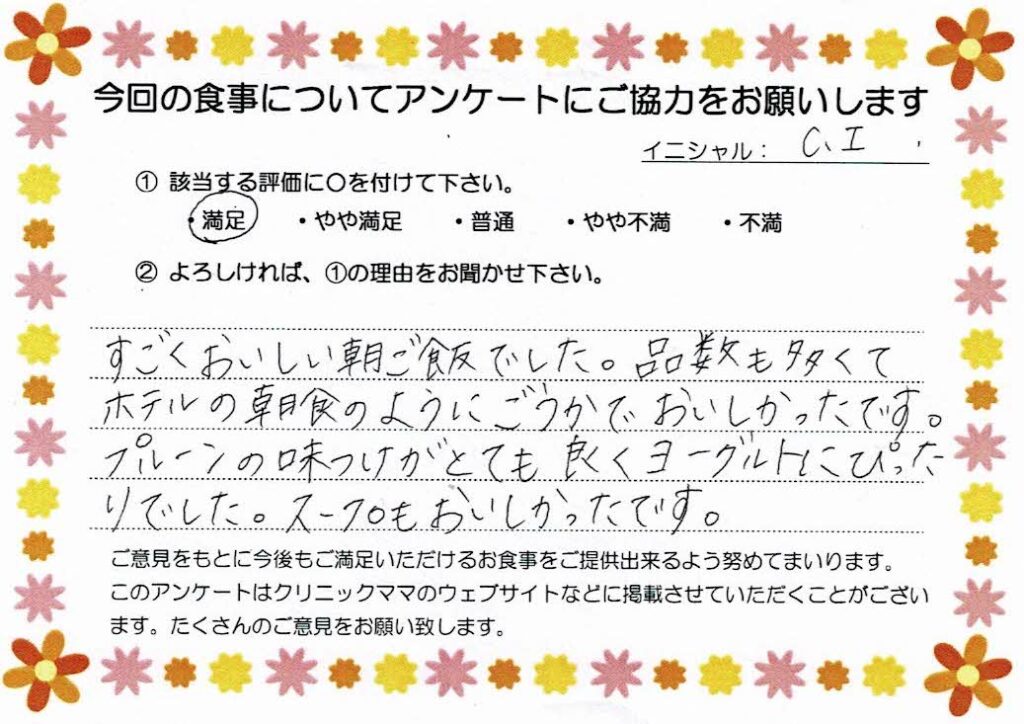 今回の食事についてアンケートにご協力をお願いします
イニシャル： C、I
① 該当する評価に〇を付けて下さい。
・満足 ・やや満足 ・普通 ・やや不満 ・不満
② よろしければ、①の理由をお聞かせ下さい。
すごくおいしい朝ご飯でした。品数も多くて
ホテルの朝食のようにごうかで おいしかったです。
プルーンの味つけがとても 良くヨーグルトにぴった
りでした。スープもおいしかったです。
ご意見をもとに今後もご満足いただけるお食事をご提供出来るよう努めてまいります。
このアンケートはクリニックママのウェブサイトなどに掲載させていただくことがござい
ます。たくさんのご意見をお願い致します。